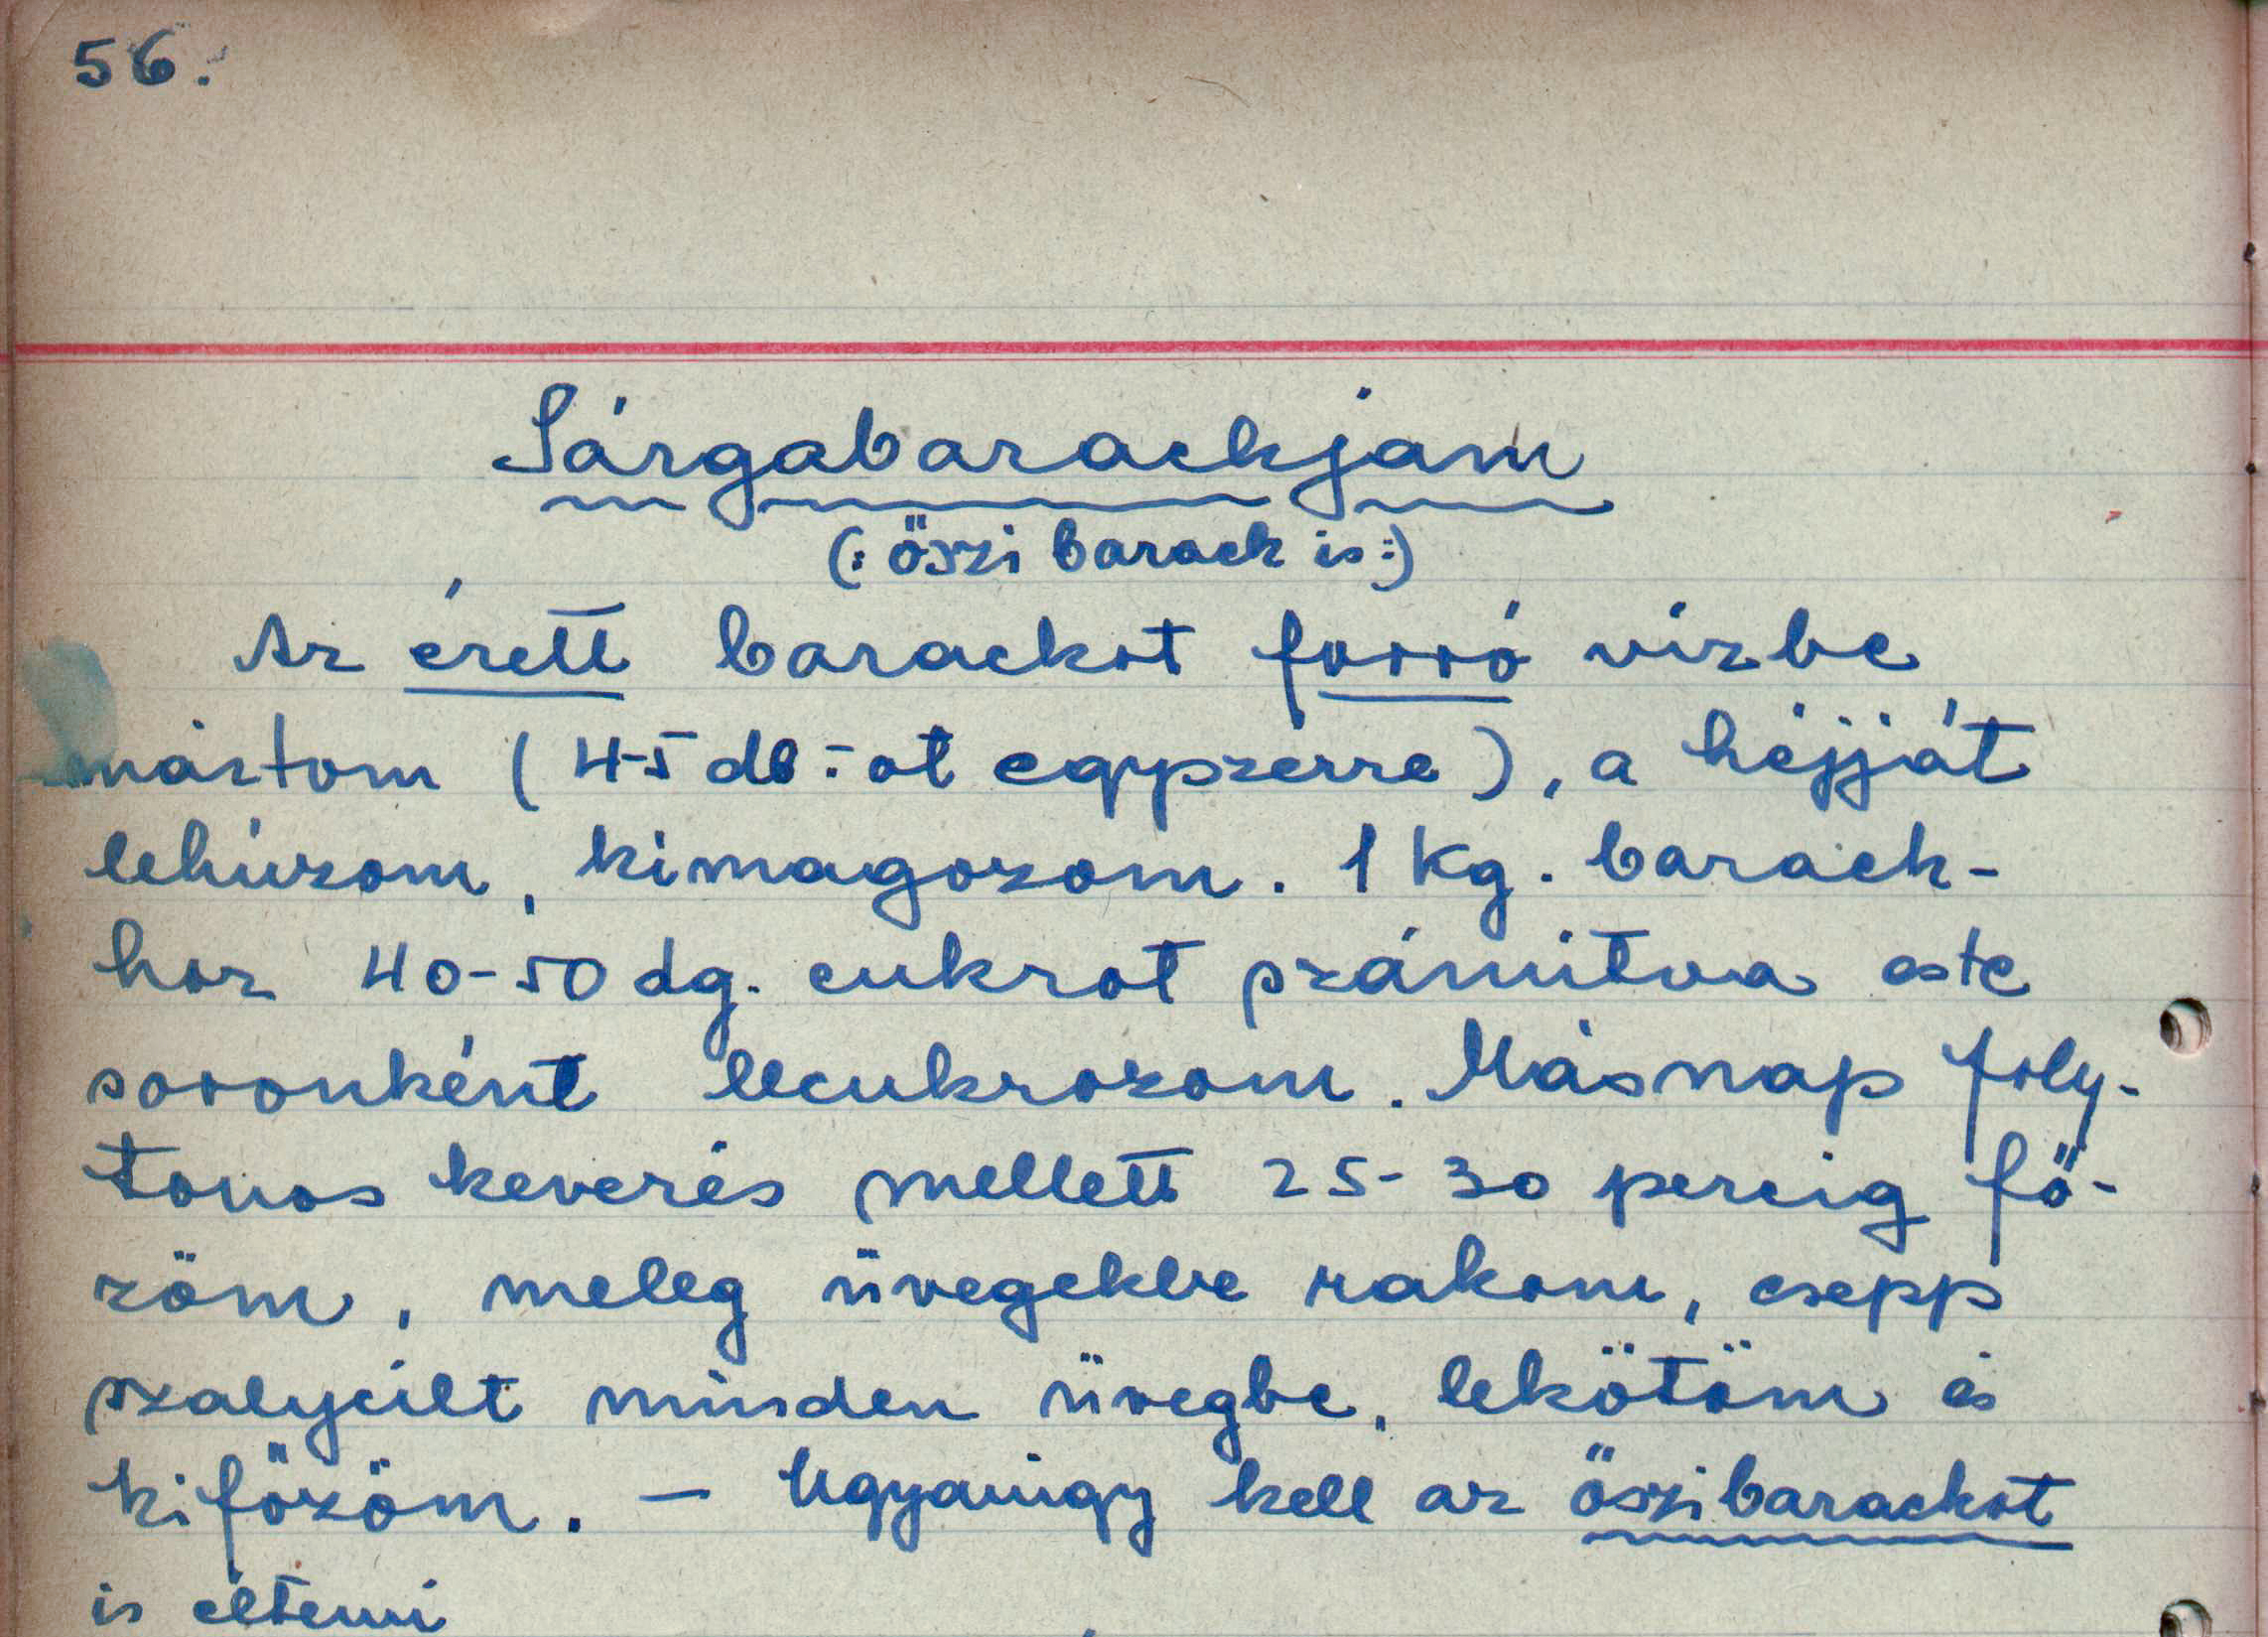 56.
Sárgabarackjam
(: őszi barack is :)
Az érett barackot forró vízbe
mártom (4-5 db-ot egyszerre), a héjját
lehúzom, kimagozom. 1 kg. barack-
hoz 40-50 dg. cukrot számítva este
soronként lecukrozom. Másnap foly-
tonos keverés mellett 25-30 percig fő-
zöm, meleg üvegekbe rakom, csepp
szalycilt minden üvegbe, lekötöm és
kifőzöm. - Ugyanígy kell az őszibarackot
is eltenni